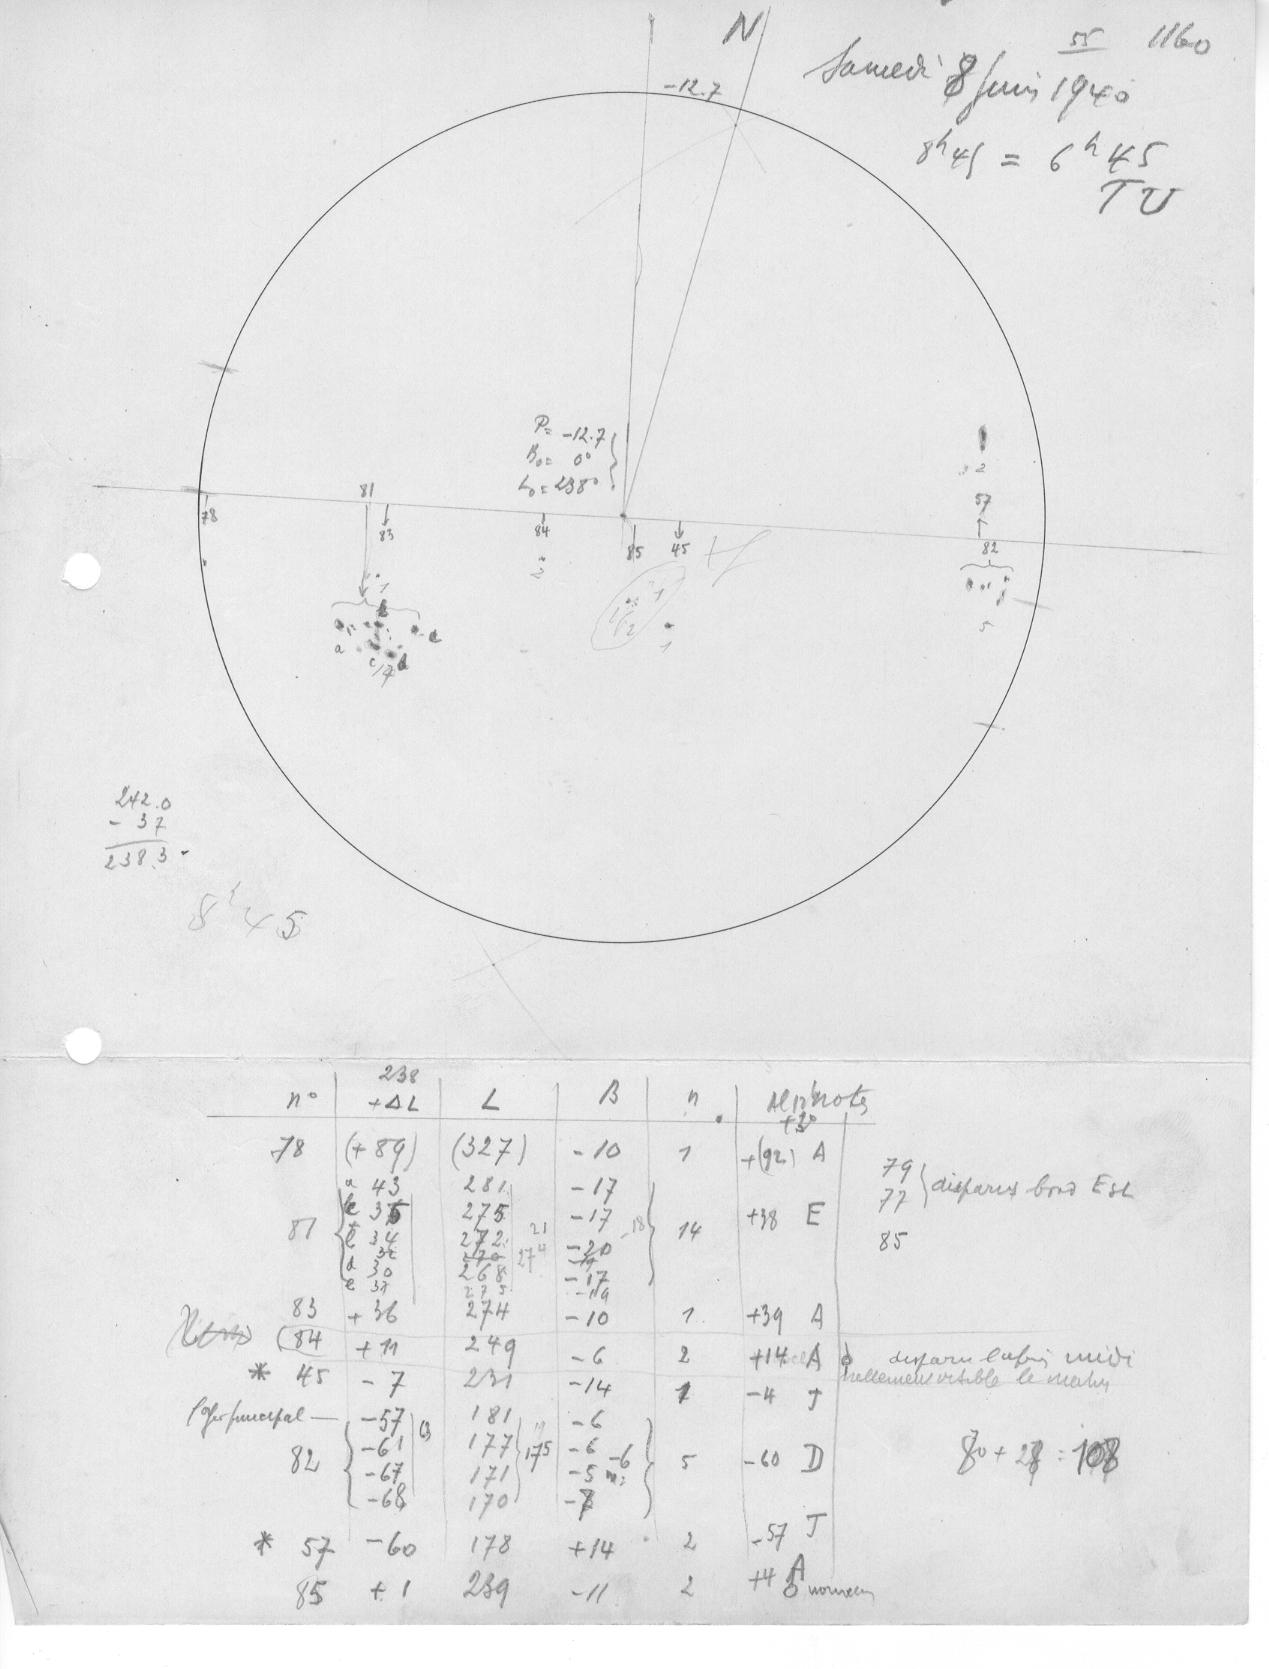 55 1160
Samedi 8 Juin 1940
8h45 = 6h45
TU
N
-12.7
P= -12.7
B0= 0°
L0= 238°
78
81
83
84
2
85
45
1
57
82
5
2
1
a
b
c
d
e
14
1
2
242.0
- 37
238.3
8h45
238
n° +ΔL L B n
+3°
78 (+89) (327) -10 1 +(92) A
79
77 disparus bord Est
85
a 43 281 -17
81 275 -17 14 +38 E
34 272 -20
d 30 268 -17
e 37 275 -19
83 +36 274 -10 1 +39 A
84 +11 249 -6 2 +14 A
visible le matin
* 45 -7 231 -14 1 -4 J
-57 181 -6
82 -61 177 175 -6 -6 5 -60 D
-67 171 -5
-68 170 -7
80 + 28 = 108
* 57 -60 178 +14 2 -57 J
85 +1 239 -11 2 +4 A nouveau